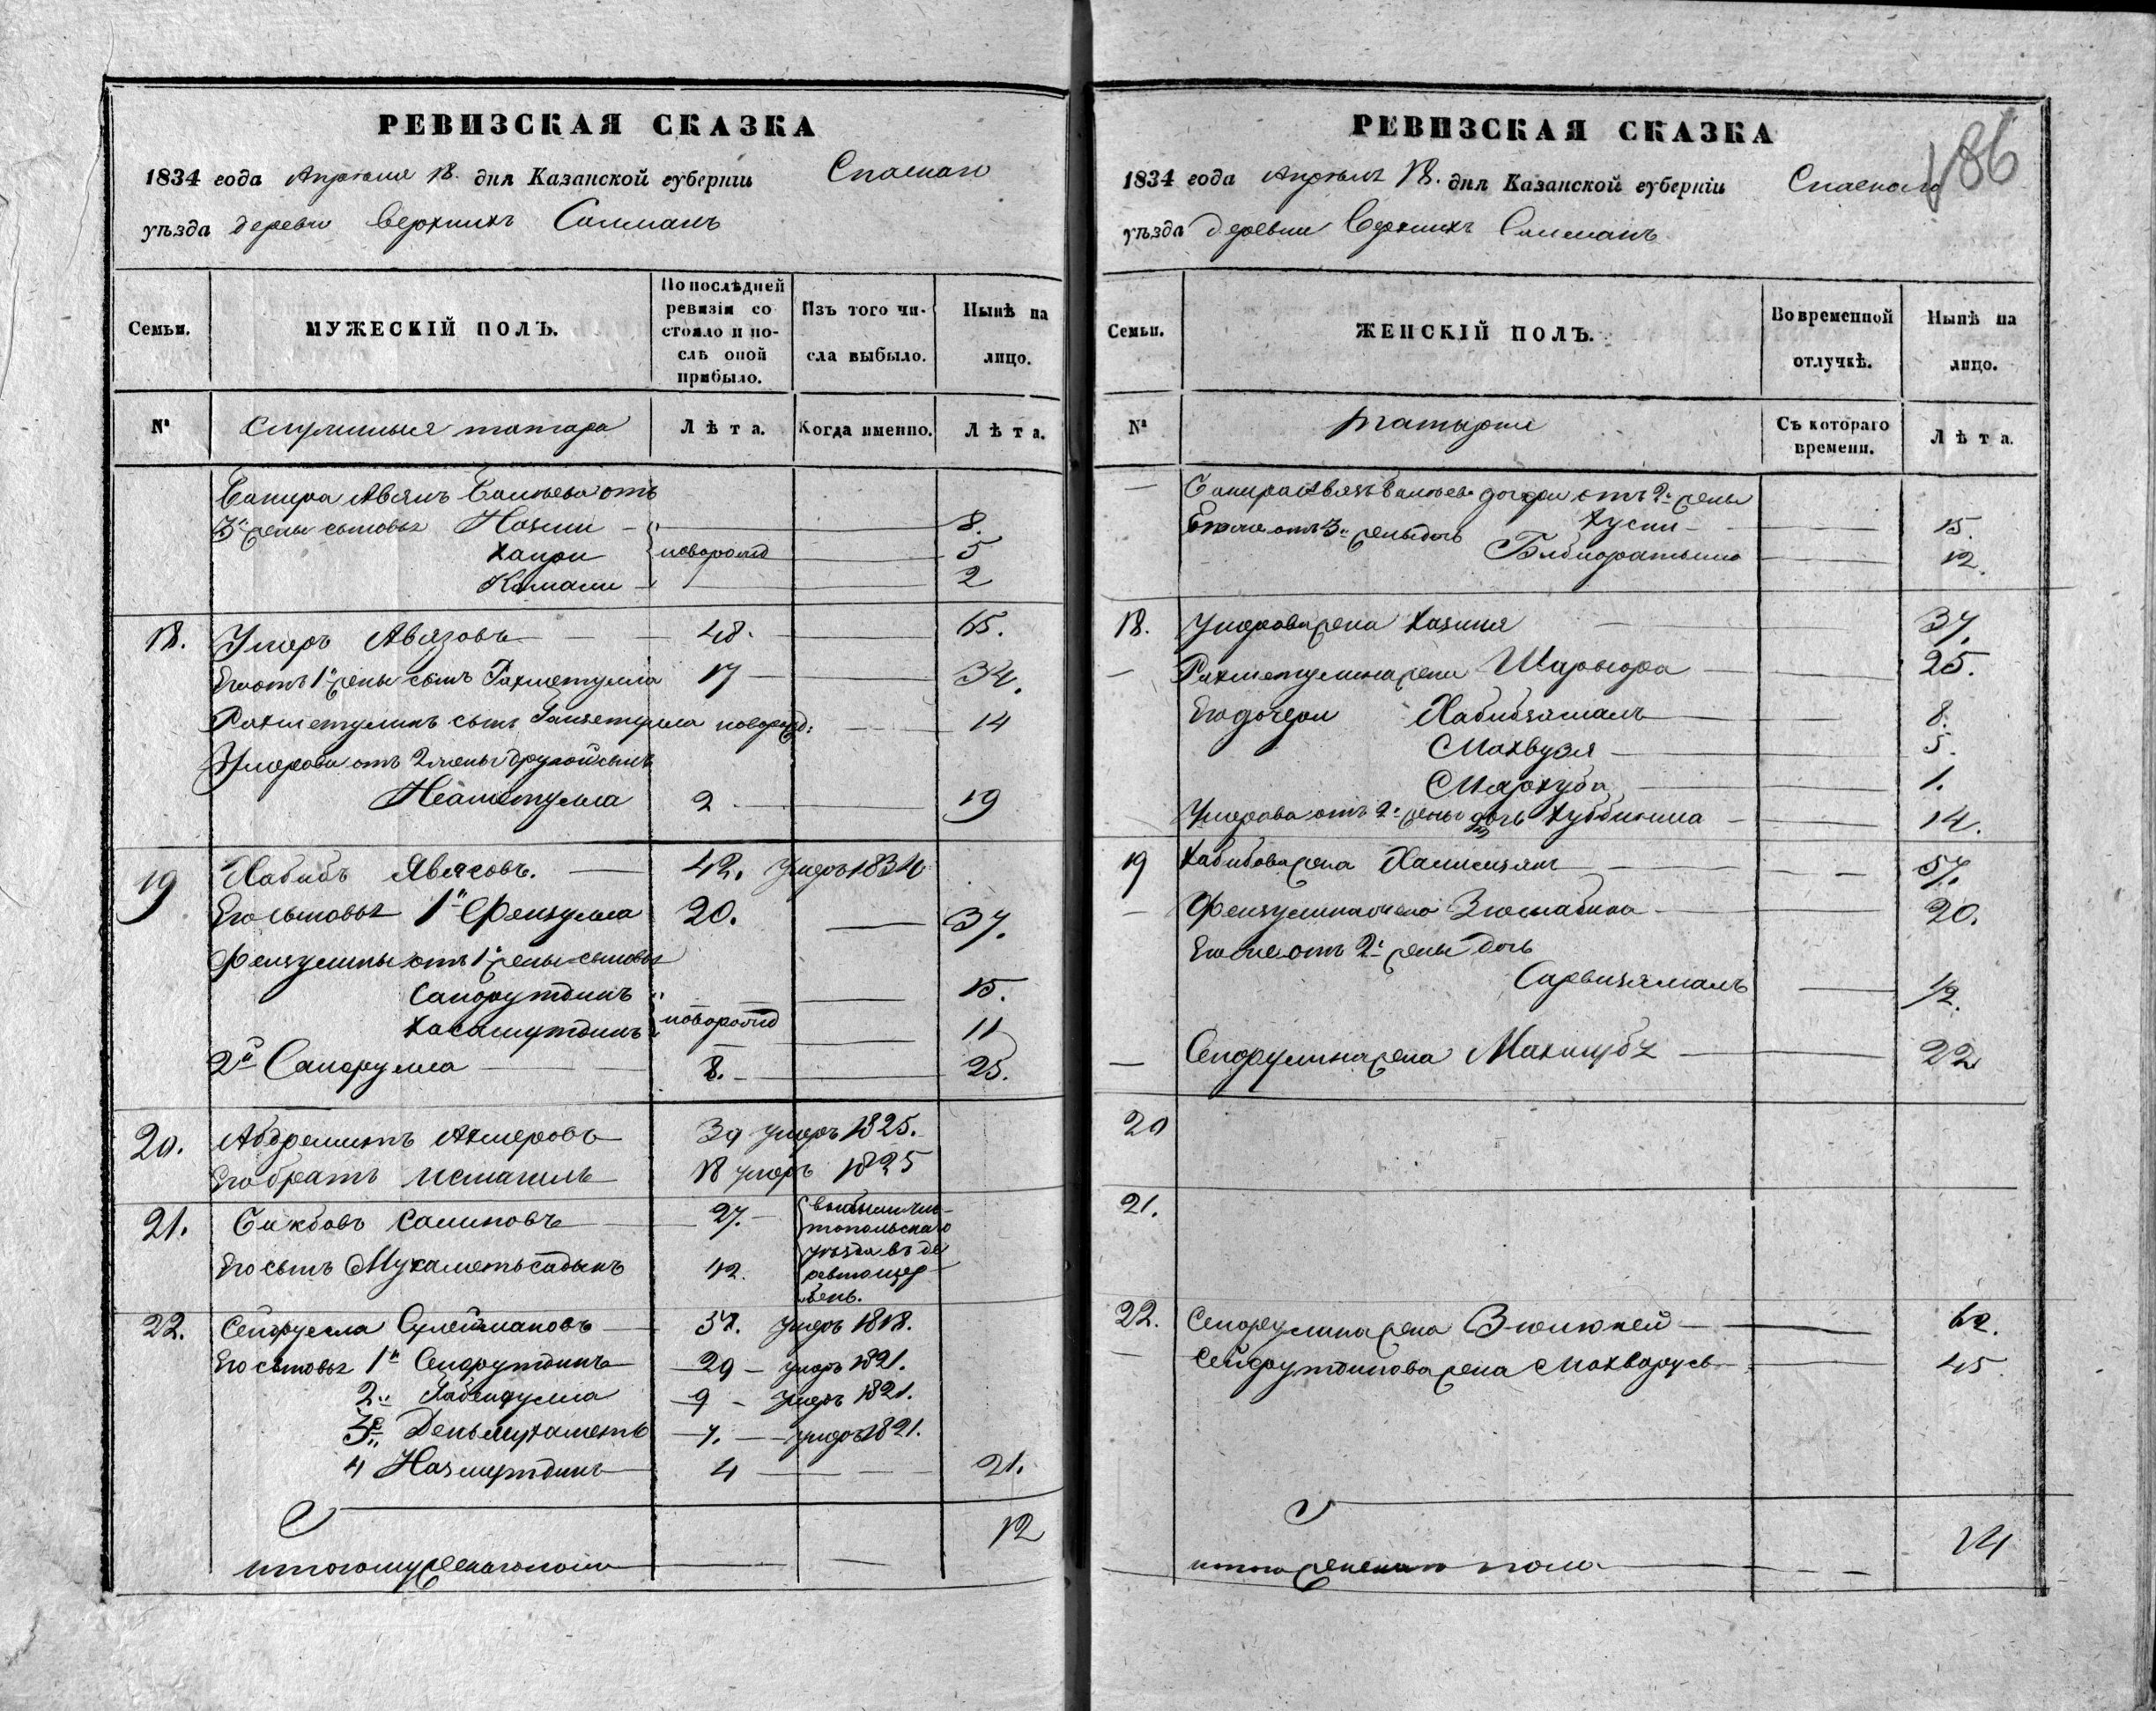 РЕВИЗСКАЯ СКАЗКА
1834 года Апреля 18. дня Казанской губерніи Спаскаго
уѣзда деревни Верхнихъ Салманъ
Семьи.
МУЖЕСКІЙ ПОЛЪ.
По послѣдней ревизіи состояло и послѣ оной прибыло.
Изъ того числа выбыло.
Нынѣ на лицо.
№
Служилыя татара
Лѣта.
Когда именно.
Лѣта.
3й жены сыновья Назми 8.
Хаири новорожд 5
Камали 2
18. Умеръ Авязовъ 48. 65.
Его отъ 1й жены сынъ Рахметулла 17 34.
Рахметулинъ сынъ новорожд: 14
Умерова отъ 2й жены другой сынъ
Неаметулла 2 19
19 Хабибъ Авясовъ. 42. умеръ 1834
Его сыновья 1й Фейзулла 20. 37.
Фейзулины отъ 1й жены сыновья
Садрутдинъ 15.
Хасамутдинъ новорожд 11
2й 8. 25.
20. Абдремитъ Ахмеровъ 39 умеръ 1825.
Его братъ Исмагиль 18 умеръ 1825
21. Салиховъ 27. выбыли Чис-
топольскаго
уѣзда въ де
Его сынъ Мухаметьсадыкъ 12. ревню Щер
бень.
22. Сейфулла Сулеймановъ 57. умеръ 1818.
Его сыновья 1й Сейфутдинъ 29 умеръ 1821.
2й Габейдулла 9 умеръ 1821.
3й Деньмухаметь 7. умеръ 1821.
4 Назмутдинъ 4 21.
итого мужескаго пола 12
РЕВИЗСКАЯ СКАЗКА
186
1834 года Апрель 18. дня Казанской губерніи Спаскаго
уѣзда деревни Верхнихъ Салманъ
Семьи.
ЖЕНСКІЙ ПОЛЪ.
Во временной отлучкѣ.
Нынѣ на лицо.
№
татарки
Съ котораго времени.
Лѣта.
дочери отъ 2й жены
Хусни 15.
Его же отъ 3й жены дочь 12.
18. Умерова жена Хазиня 37.
Рахметулина жена 25.
Его дочери Хабибзямалъ 8.
Махвузя 5.
Мархуба 1.
Умерова отъ 2й жены дочь Хуббиниса 14.
19 Хабибова жена 57.
Фейзулина жена 20.
Его же отъ 2й жены дочь
Сарвизямалъ 1/2.
жена Махпубз 22
20
21.
22. Сейфулина жена Зюлюкей 62.
Сейфутдинова жена 45
итого женскаго пола 14